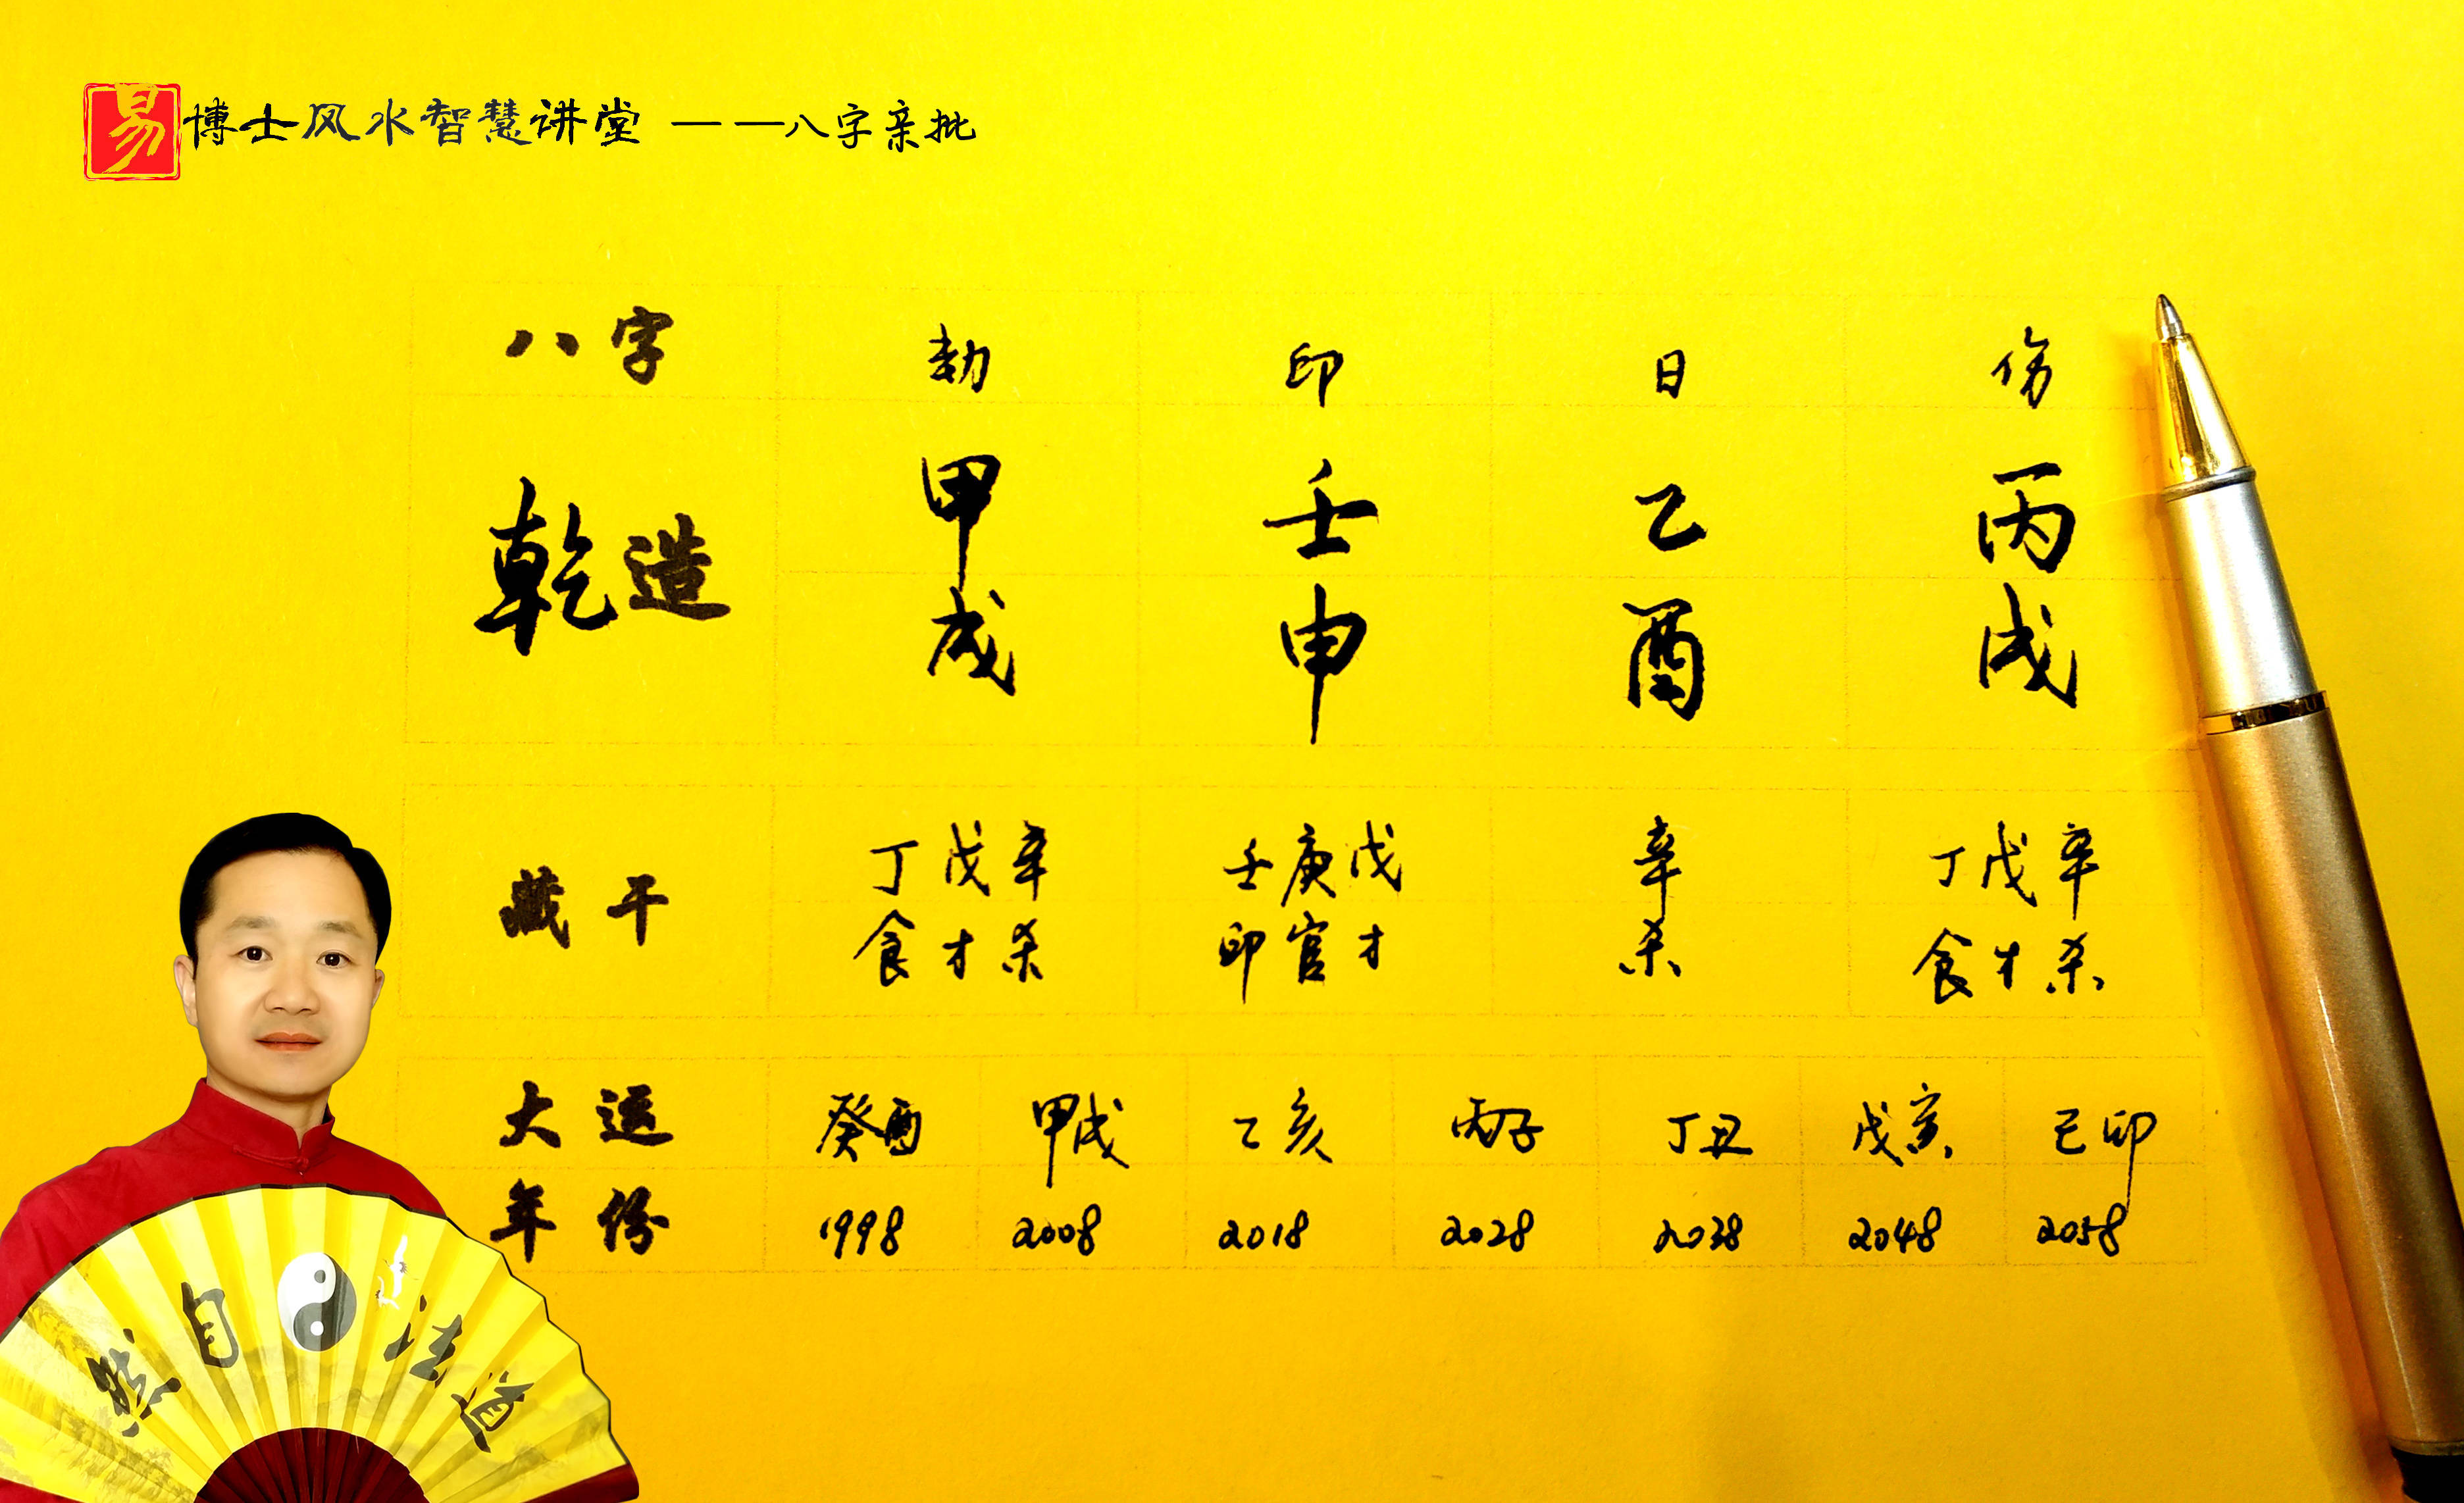 易博士风水智慧讲堂 ——八字亲批
八字 劫 印 日 伤
乾造 甲 壬 乙 丙
戌 申 酉 戌
藏干 丁戊辛 壬庚戊 辛 丁戊辛
食才杀 印官才 杀 食才杀
大运 癸酉 甲戌 乙亥 丙子 丁丑 戊寅 己卯
年份 1998 2008 2018 2028 2038 2048 2058
然自法道